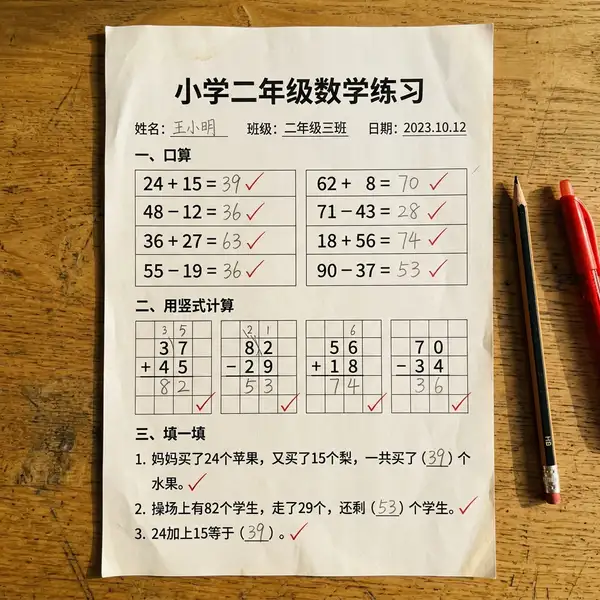 小学二年级数学练习
姓名：王小明 班级：二年级三班 日期：2023.10.12
一、口算
24+15=39✓ 62+ 8=70 ✓
48−12=36✓ 71−43=28✓
36+27=63✓ 18+56=74✓
55−19=36✓ 90−37=53✓
二、用竖式计算
3 5 2 1 6
37 82 56 70
+45 −29 +18 −34
82 53 74 36
✓ ✓ ✓ ✓
三、填一填
1. 妈妈买了24个苹果，又买了15个梨，一共买了（39）个
水果。✓
2. 操场上有82个学生，走了29个，还剩（53）个学生。✓
3. 24加上15等于（39）。✓
HB